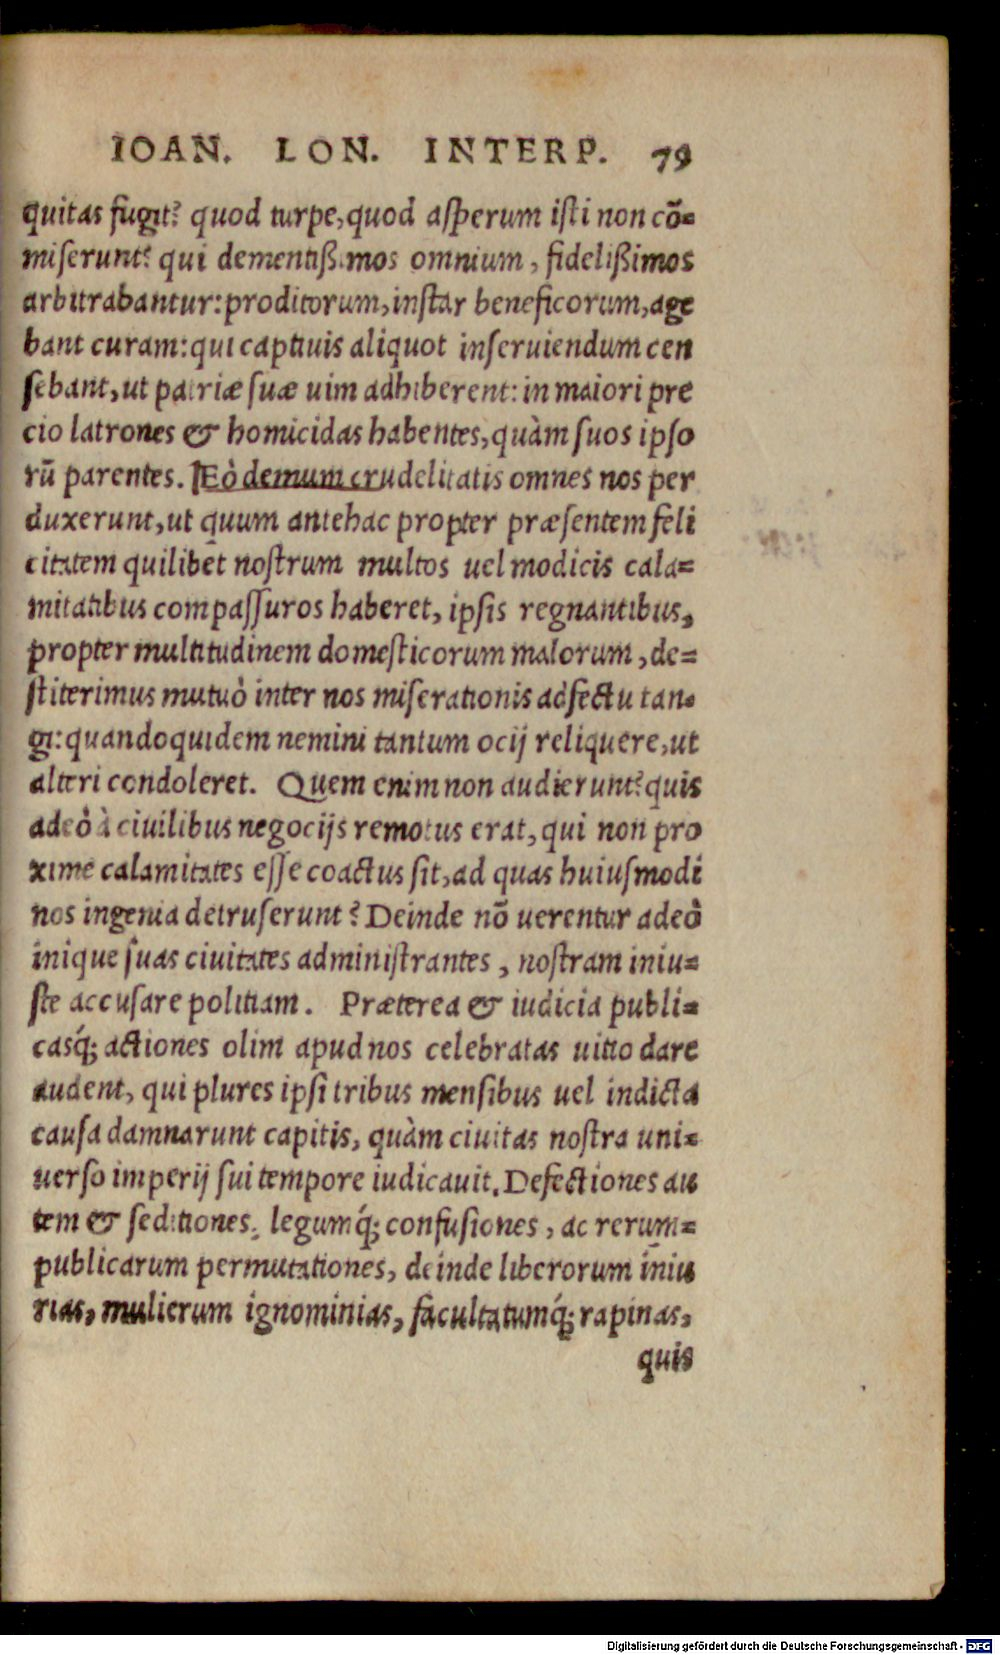 IOAN. LON. INTERP. 79
quitas fugit? quod turpe, quod asperum isti non cõ-
miserunt? qui dementißimos omnium, fidelißimos
arbitrabantur: proditorum, instar beneficorum, age
bant curam: qui captiuis aliquot inseruiendum cen
sebant, ut patriæ suæ uim adhiberent: in maiori pre
cio latrones & homicidas habentes, quàm suos ipso
rũ parentes. Eò demum crudelitatis omnes nos per
duxerunt, ut quum antehac propter præsentem feli
citatem quilibet nostrum multos uel modicis cala-
mitatibus compassuros haberet, ipsis regnantibus,
propter multitudinem domesticorum malorum, de-
stiterimus mutuò inter nos miserationis adfectu tan-
gi: quandoquidem nemini tantum ocij reliquere, ut
alteri condoleret. Quem enim non audierunt? quis
adeò à ciuilibus negocijs remotus erat, qui non pro
xime calamitates esse coactus sit, ad quas huiusmodi
nos ingenia detruserunt? Deinde nõ uerentur adeò
inique suas ciuitates administrantes, nostram iniu-
ste accusare politiam. Præterea & iudicia publi-
casq́; actiones olim apud nos celebratas uitio dare
audent, qui plures ipsi tribus mensibus uel indicta
causa damnarunt capitis, quàm ciuitas nostra uni-
uerso imperij sui tempore iudicauit. Defectiones au
tem & seditiones, legumq́; confusiones, ac rerum-
publicarum permutationes, deinde liberorum iniu
rias, mulierum ignominias, facultatumq́; rapinas,
quis
Digitalisierung gefördert durch die Deutsche Forschungsgemeinschaft - DFG